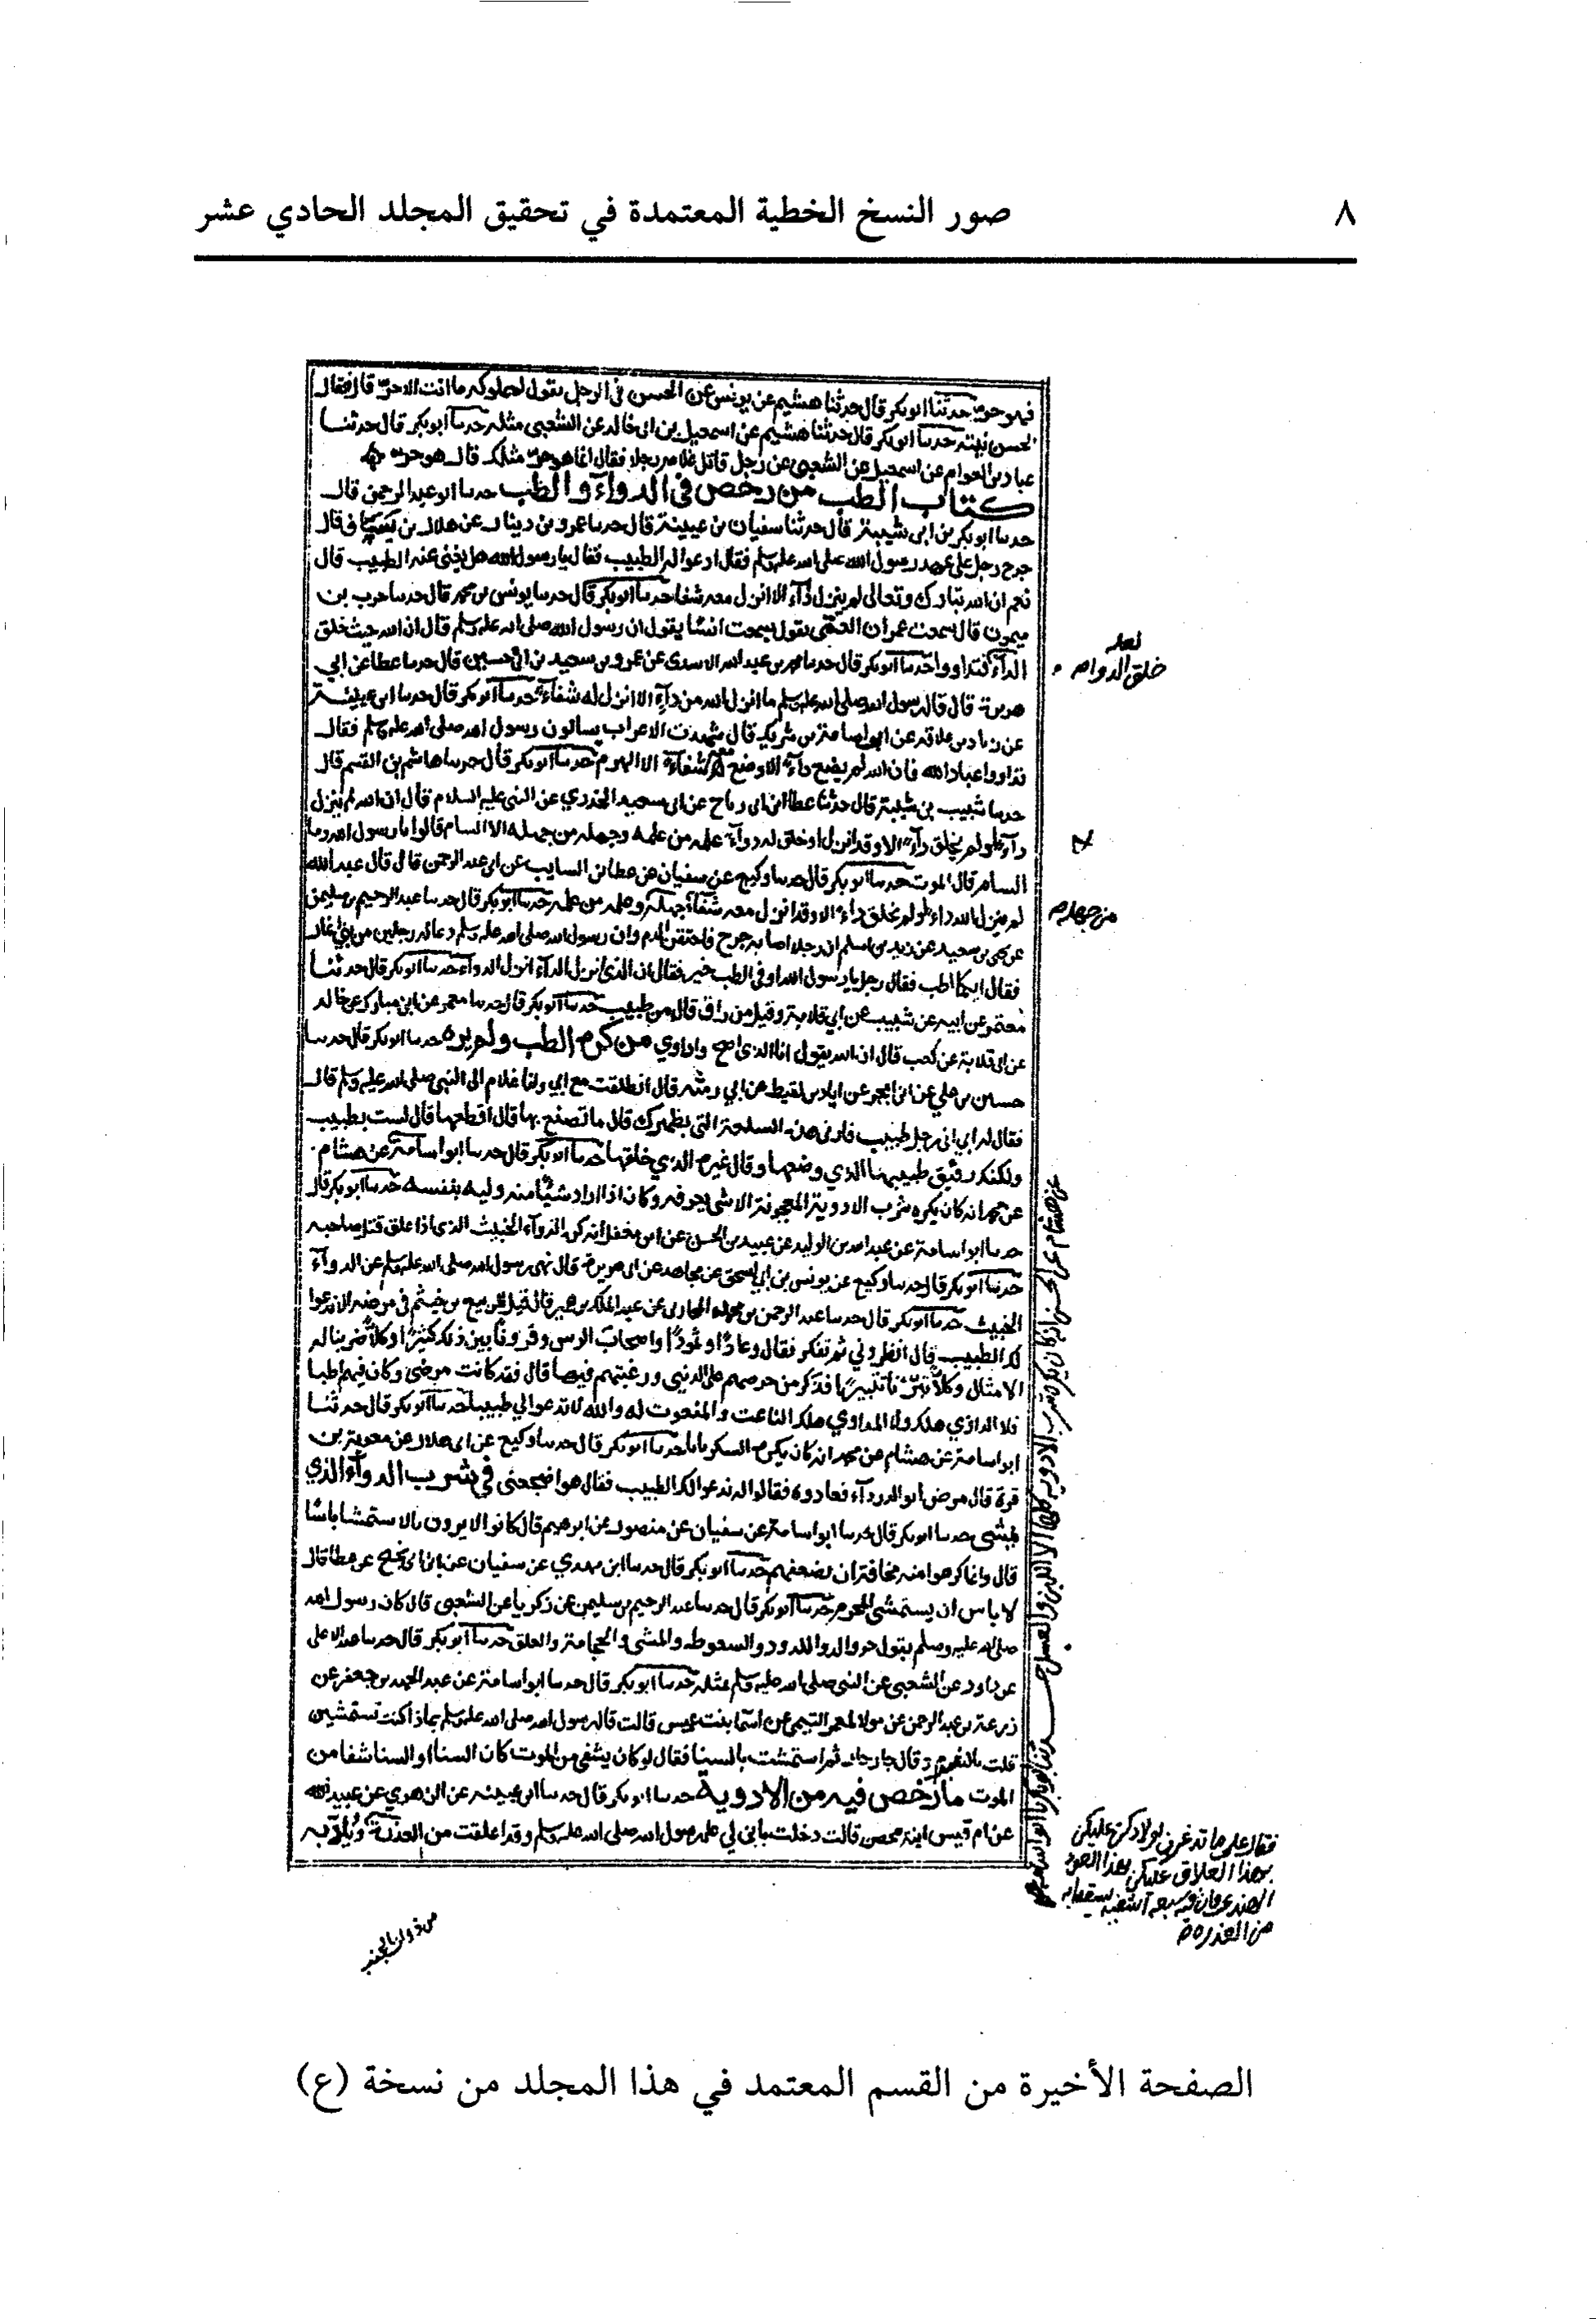 ٨
صور النسخ الخطية المعتمدة في تحقيق المجلد الحادي عشر
فهو حر حدثنا ابو بكر قال حدثنا هشيم عن يونس عن الحسن في الرجل يقول لمملوكه ما انت الا حر قال فقال
الحسن نيته حدسا ابو بكر قال حدثنا هشيم عن اسمعيل بن ابى خالد عن الشعبي مثله حدسا ابو بكر قال حدثنا
عباد بن العوام عن اسمعيل عن الشعبي عن رجل قاتل غلامه رجلا فقال انما هو حر مثلك قال هو حر
كتاب الطب من رخص في الدواء والطب حدسا ابو عبد الرحمن قال
حدسا ابو بكر بن ابى شيبة قال حدثنا سفيان بن عيينة قال حدسا عمرو بن دينار عن هلال بن يساف قال
جرح رجل على عهد رسول الله صلى الله عليه وسلم فقال ادعوا له الطبيب فقال يا رسول الله هل يغنى عنه الطبيب قال
نعم ان الله تبارك وتعالى لم ينزل داء الا انزل معه شفا حدسا ابو بكر قال حدسا يونس بن محمد قال حدسا حرب بن
ميمون قال سمعت عمران العمى يقول سمعت انسا يقول ان رسول الله صلى الله عليه وسلم قال ان الله حيث خلق
الداء فتداووا حدسا ابو بكر قال حدسا محمد بن عبد الله الاسدى عن عمرو بن سعيد بن ابى حسين قال حدسا عطا عن ابي
هريرة قال قال رسول الله صلى الله عليه وسلم ما انزل الله من داء الا انزل له شفاء حدسا ابو بكر قال حدسا ابن عيينة
عن زياد بن علاقة عن اسامة بن شريك قال شهدت الاعراب يسالون رسول الله صلى الله عليه وسلم فقال
تداووا عباد الله فان الله لم يضع داء الا وضع معه شفاء الا الهرم حدسا ابو بكر قال حدسا هاشم بن القسم قال
حدسا شبيب بن شيبة قال حدثنا عطا ابن ابى رباح عن ابى سعيد الخدري عن النبى عليه السلام قال ان الله لم ينزل
داء او لم يخلق داء الا وقد انزل او خلق له دواء علمه من علمه وجهله من جهله الا السام قالوا يا رسول الله وما
السام قال الموت حدسا ابو بكر قال حدسا وكيع عن سفيان عن عطا بن السايب عن ابى عبد الرحمن قال قال عبد الله
لم ينزل الله داء او لم يخلق داء الا وقد انزل معه شفاء جهله وعلمه من علمه حدسا ابو بكر قال حدسا عبد الرحيم بن سليمن
عن يحيى بن سعيد عن زيد بن اسلم ان رجلا اصابه جرح فاحتقن الدم وان رسول الله صلى الله عليه وسلم دعا له رجلين من بني انمار
فقال ايكما اطب فقال رجل يا رسول الله اوفي الطب خير فقال ان الذى انزل الداء انزل الدواء حدسا ابو بكر قال حدثنا
معتمر عن ابيه عن شبيب عن ابي قلابة وقيل من راق قال من طبيب حدسا ابو بكر قال حدسا معمر عن ابن مبارك عن خالد
عن ابى قلابة عن كعب قال ان الله يقول انا الذى اصح واداوي من كره الطب ولم يره حدسا ابو بكر قال حدسا
حسين بن علي عن ابن ابجر عن اياد بن لقيط عن ابي رمثة قال انطلقت مع ابي وانا غلام الى النبي صلى الله عليه وسلم قال
فقال له ابي انى رجل طبيب فارنى هذه السلعة التى بظهرك قال ما تصنع بها قال اقطعها قال لست بطبيب
ولكنك رفيق طبيبها الذي وضعها وقال غيره الذي خلقها حدسا ابو بكر قال حدسا ابو اسامة عن هشام
عن محمد انه كان يكره شرب الادوية المعجونة الا شى يعرفه وكان اذا اراد شيئا منه وليه بنفسه حدسا ابو بكر قال
حدسا ابو اسامة عن عبد الله بن الوليد عن عبيد بن الحسن عن ابن مغفل انه كره الدواء الخبيث الذى اذا علق قتل صاحبه
حدسا ابو بكر قال حدسا وكيع عن يونس بن ابي اسحق عن مجاهد عن ابى هريرة قال نهى رسول الله صلى الله عليه وسلم عن الدواء
الخبيث حدسا ابو بكر قال حدسا عبد الرحمن بن محمد المحاربى عن عبد الملك بن عمير قال قيل للربيع بن خيثم في مرضه الا ندعوا
لك الطبيب قال انظروني ثم تفكر فقال وعادا وثمودا واصحاب الرس وقرونا بين ذلك كثيرا وكلا ضربنا له
الامثال وكلا تبرنا تتبيرا فذكر من حرصهم على الدنيى ورغبتهم فيها قال فقد كانت مرضى وكان فيهم اطبا
فلا المداوي هلك ولا المداوي هلك الناعت والمنعوت له والله لا تدعوا لي طبيبا حدسا ابو بكر قال حدثنا
ابو اسامة عن هشام عن محمد انه كان يكره السكر حدسا ابو بكر قال حدسا وكيع عن ابى هلال عن معوية بن
قرة قال مرض ابو الدرداء فعادوه فقالوا له ندعوا لك الطبيب فقال هو اضجعنى في شرب الدواء الذي
يمشى حدسا ابو بكر قال حدسا ابو اسامة عن سفيان عن منصور عن ابرهيم قال كانوا لا يرون بالاستمشا باسا
قال وانما كرهوا منه مخافة ان يضعفهم حدسا ابو بكر قال حدسا ابن مهدي عن سفيان عن ابن ابى نجيح عن عطا قال
لا باس ان يستمشى المحرم حدسا ابو بكر قال حدسا عبد الرحيم بن سليمن عن زكريا عن الشعبى قال كان رسول الله
صلى الله عليه وسلم يقول خير الدواء اللدود والسعوط والمشى والحجامة والعلق حدسا ابو بكر قال حدسا عبد الاعلى
عن داود عن الشعبى عن النبى صلى الله عليه وسلم بمثله حدسا ابو بكر قال حدسا ابو اسامة عن عبد الحميد بن جعفر عن
زرعة بن عبد الرحمن عن مولا لمعمر التيمى عن اسما بنت عميس قالت قال رسول الله صلى الله عليه وسلم بماذا كنت تستمشين
قلت بالشبرم قال حار حار ثم استمشت بالسنا فقال لو كان يشفي من الموت كان السنا او السنا شفا من
الموت ما رخص فيه من الادوية حدسا ابو بكر قال حدسا ابن عيينه عن الزهري عن عبيد الله
عن ام قيس ابنة محصن قالت دخلت بابن لي على رسول الله صلى الله عليه وسلم وقد اعلقت من العذرة
لعله
خلق الدواء
من جهله
فقال على ما تدغرن اولادكن عليكن
بهذا العلاق عليكن بهذا العود
الهندى فان فيه سبعة اشفية يسعط به
من العذرة
الصفحة الأخيرة من القسم المعتمد في هذا المجلد من نسخة (ع)